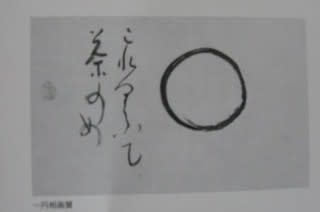 これくふて
茶のめ
一円相画賛